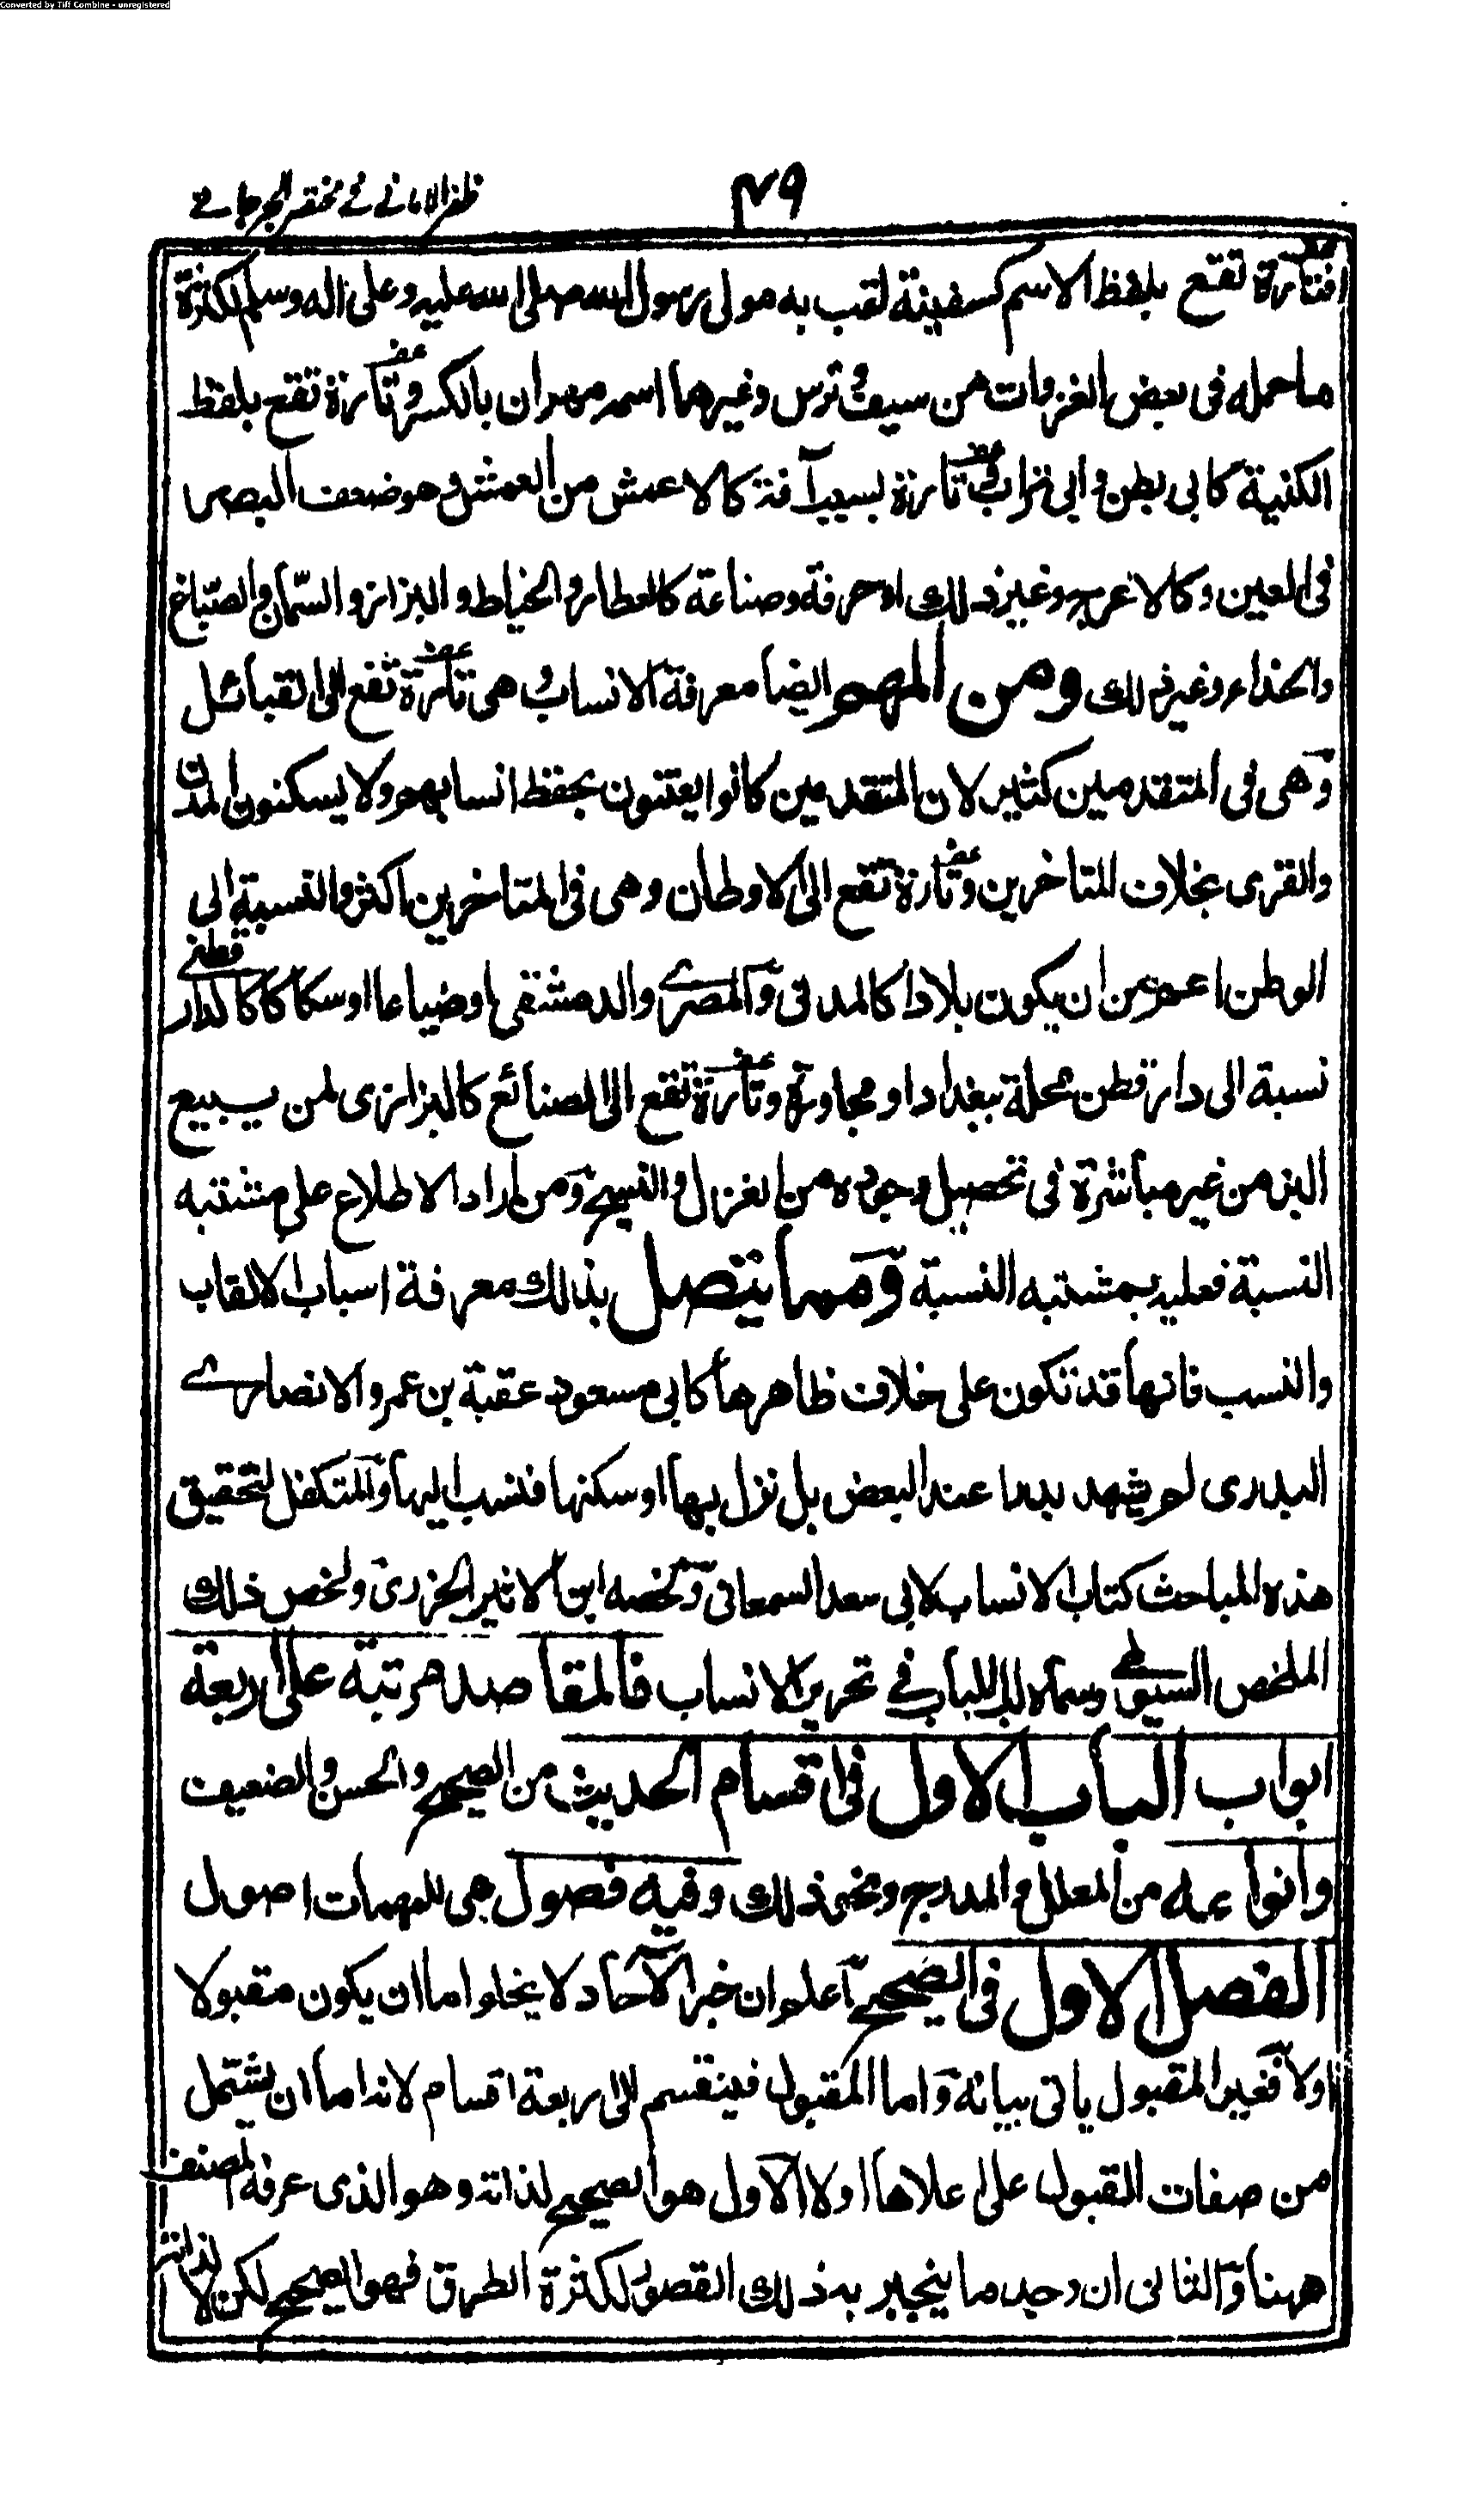 Converted by Tiff Combine - unregistered
ظفر الامانے فے مختصر الجرجانے
٤٩
فتارة تقع بلفظ الاسم كسفينة لقب به مولى رسول الله صلى الله عليه وعلى اله وسلم لكثرة
ما حمله فى بعض الغزوات من سيف و ترس وغيرهما اسمه مهران بالكسر وتارة تقع بلفظ
الكنية كابى بطن و ابى تراب وتارة بسبب آفة كالاعمش من العمش وهو ضعف البصر
فى العين وكالاعرج وغير ذلك او حرفة وصناعة كالعطار والخياط والبزاز والسمّان والصبّاغ
والحذاء وغير ذلك ومن المهم ايضا معرفة الانساب وهى تارة تقع الى القبائل
وهى فى المتقدمين كثير لان المتقدمين كانوا يعتنون بحفظ انسابهم ولا يسكنون المدن
والقرى بخلاف المتاخرين وتارة تقع الى الاوطان وهى فى المتاخرين اكثر والنسبة الى
الوطن اعم من ان يكون بلادا كالمدنى والمصرے والدمشقى او ضياعا او سككا كالدارقطنے
نسبة الى دار قطن محلة ببغداد او مجاورة وتارة تقع الى الصنائع كالبزازى لمن يبيع
البز من غير مباشرة فى تحصيل وجوده من الغزل والنسج ومن اراد الاطلاع على مشتبه
النسبة فعليه بمشتبه النسبة ومما يتصل بذلك معرفة اسباب الالقاب
والنسب فانها قد تكون على خلاف ظاهرها كابى مسعود عقبة بن عمرو الانصارے
البدرى لم يشهد بدرا عند البعض بل نزل بها او سكنها فنسب اليها والمتكفل لتحقيق
هذه المباحث كتاب الانساب لابى سعد السمعانى ولخصه ابن الاثير الجزرى ولخص ذلك
الملخص السيوطے وسماه لب اللباب فے تحرير الانساب فالمقاصد مرتبة على اربعة
ابواب الباب الاول فى اقسام الحديث من الصحيح والحسن والضعيف
وانواعه من المعلل و المدرج ونحو ذلك وفيه فصول هى للمهمات اصول
الفصل الاول فى الصحيح اعلم ان خبر الآحاد لا يخلو اما ان يكون مقبولا
اولا فغير المقبول ياتى بيانه واما المقبول فينقسم الى اربعة اقسام لانه اما ان يشتمل
من صفات القبول على اعلاها اولا الاول هو الصحيح لذاته وهو الذى عرفه المصنف
ههنا والثانى ان وجد ما ينجبر به ذلك القصور ككثرة الطرق فهو الصحيح لكن لا لذاته